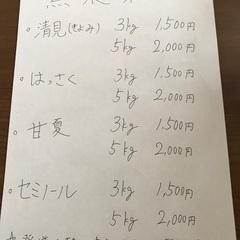 ・清見(きよみ) 3kg 1,500円
5kg 2,000円
・はっさく 3kg 1,500円
5kg 2,000円
・甘夏 3kg 1,500円
5kg 2,000円
・セミノール 3kg 1,500円
5kg 2,000円